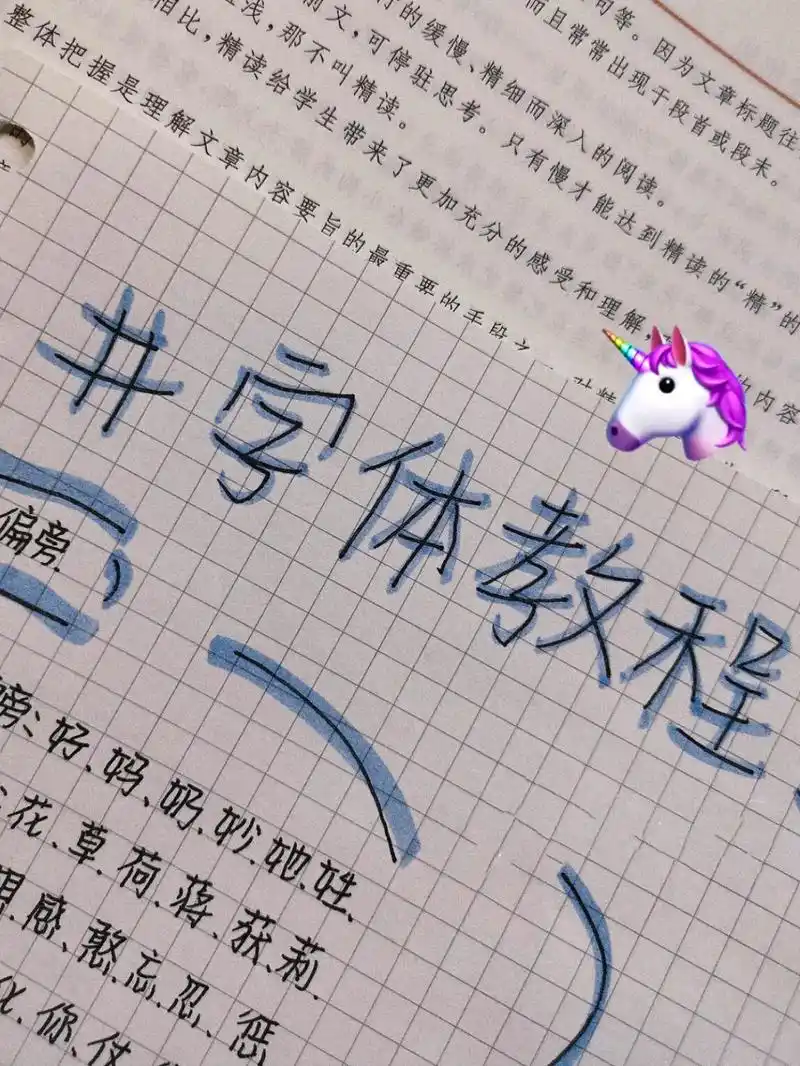 句等。因为文章标题往
而且常常出现于段首或段末。
行的缓慢、精细而深入的阅读。
别文,可停驻思考。只有慢才能达到精读的“精”的
浅,那不叫精读。
相比,精读给学生带来了更加充分的感受和理解,
内容
整体把握是理解文章内容要旨的最重要的手段之
#字体教程
偏旁
旁:好、妈、奶、妙、她、姓、
花、草、荷、蒋、获、莉
想、感、憨、忘、忍、惩
化、你、仗